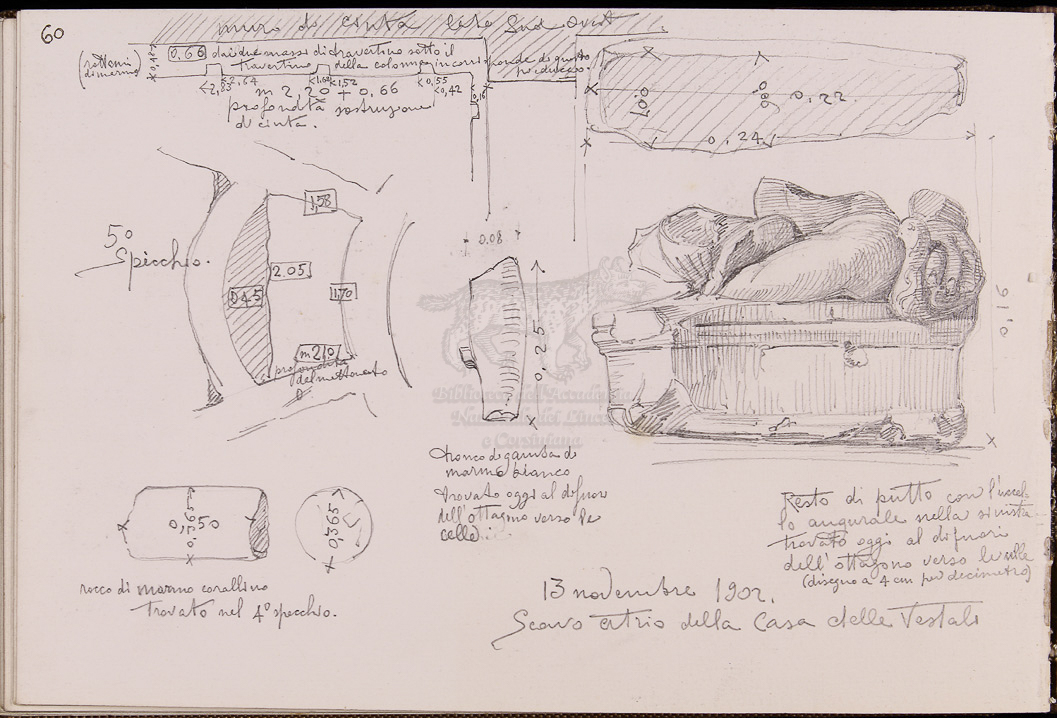 60
muro di cinta lato Sud Ovest
(rottami di marmo)
0,66 dai due massi di travertino sotto il
travertino della colonna in corrisponde di questo
2,83 2,64 1,52 0,55
0,42
0,16
m 2,20 + 0,66
profondità sostruzione
di cinta.
0,22
0,24
5º
Spicchio.
1,58
2.05
0,45
1,70
m 2,0
profondità
0.08
0,25
0,16
Biblioteca dell'Accademia
Nazionale dei Lincei
e Corsiniana
tronco di gamba di
marmo bianco
trovato oggi al difuori
dell'ottagono verso le
celle
0,50
0,365
0,365
rocco di marmo corallino
trovato nel 4º specchio.
Resto di putto con l'uccel-
lo augurale nella sinistra
trovato oggi al difuori
dell'ottagono verso le celle
(disegno a 4 cm per decimetro)
13 novembre 1902.
Scavo atrio della Casa delle Vestali